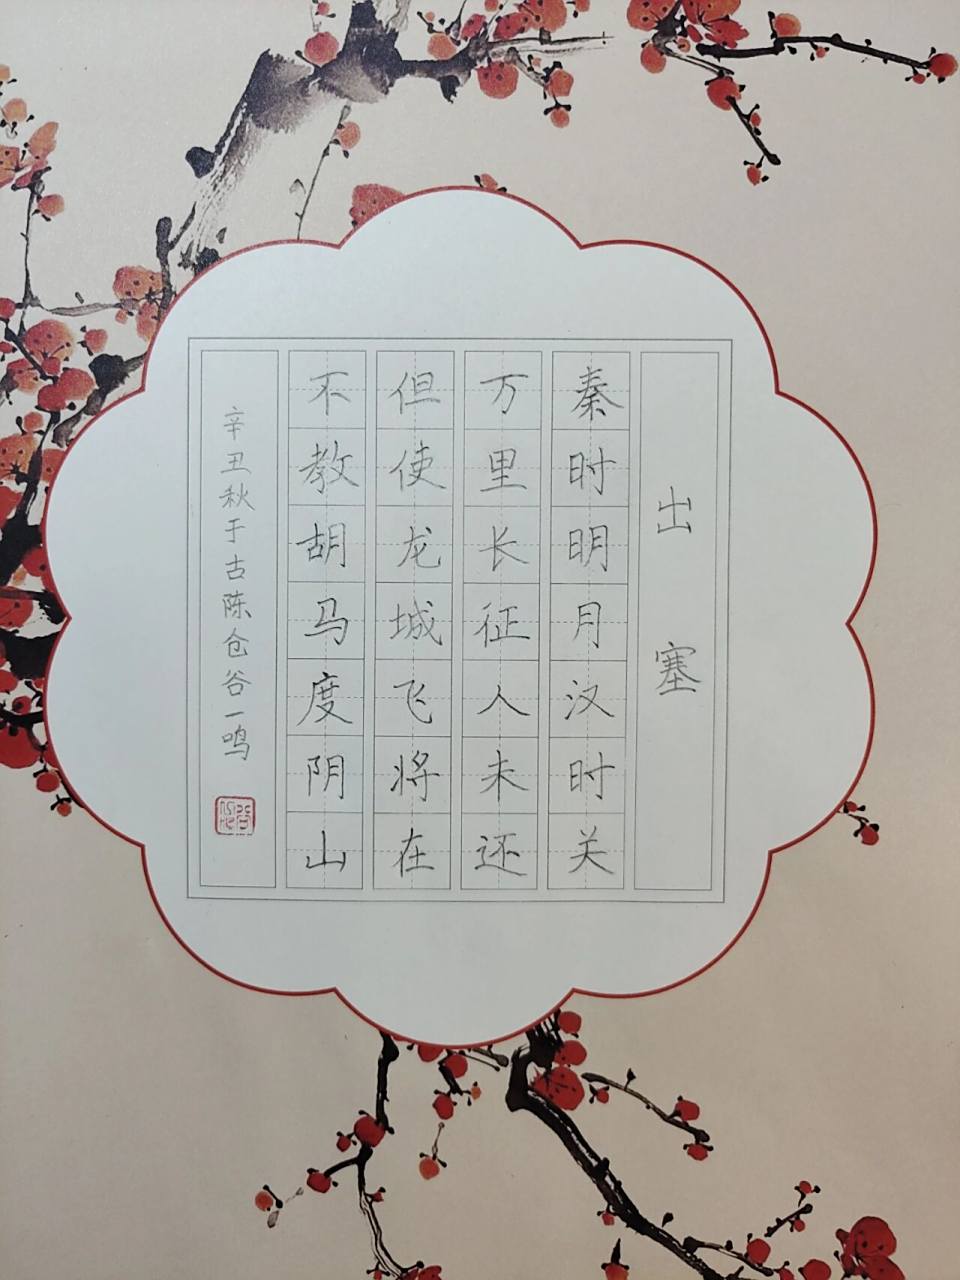 出塞
秦时明月汉时关
万里长征人未还
但使龙城飞将在
不教胡马度阴山
辛丑秋于古陈仓谷一鸣